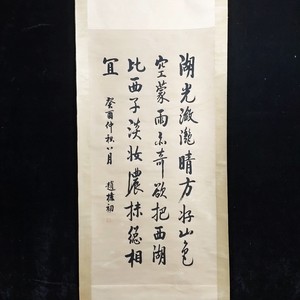 湖光瀲灧晴方好山色
空蒙雨亦奇欲把西湖
比西子淡妝濃抹總相
宜
癸酉仲秋八月 趙樸初